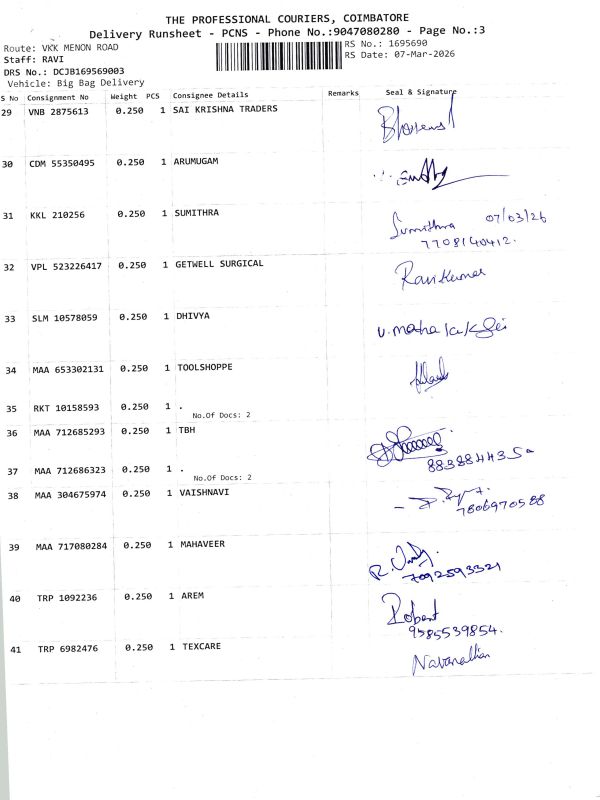 THE PROFESSIONAL COURIERS, COIMBATORE
Delivery Runsheet - PCNS - Phone No.:9047080280 - Page No.:3
Route: VKK MENON ROAD
RS No.: 1695690
Staff: RAVI
RS Date: 07-Mar-2026
DRS No.: DCJB169569003
Vehicle: Big Bag Delivery
S No Consignment No Weight PCS Consignee Details Remarks Seal & Signature
29 VNB 2875613 0.250 1 SAI KRISHNA TRADERS
30 CDM 55350495 0.250 1 ARUMUGAM
31 KKL 210256 0.250 1 SUMITHRA Sumithra 07/03/26
7708140412.
32 VPL 523226417 0.250 1 GETWELL SURGICAL Ravikumar
33 SLM 10578059 0.250 1 DHIVYA
34 MAA 653302131 0.250 1 TOOLSHOPPE
35 RKT 10158593 0.250 1 .
No.Of Docs: 2
36 MAA 712685293 0.250 1 TBH
37 MAA 712686323 0.250 1 .
No.Of Docs: 2
38 MAA 304675974 0.250 1 VAISHNAVI
7806970588
39 MAA 717080284 0.250 1 MAHAVEER
7092593321
40 TRP 1092236 0.250 1 AREM Robert
9585539854.
41 TRP 6982476 0.250 1 TEXCARE